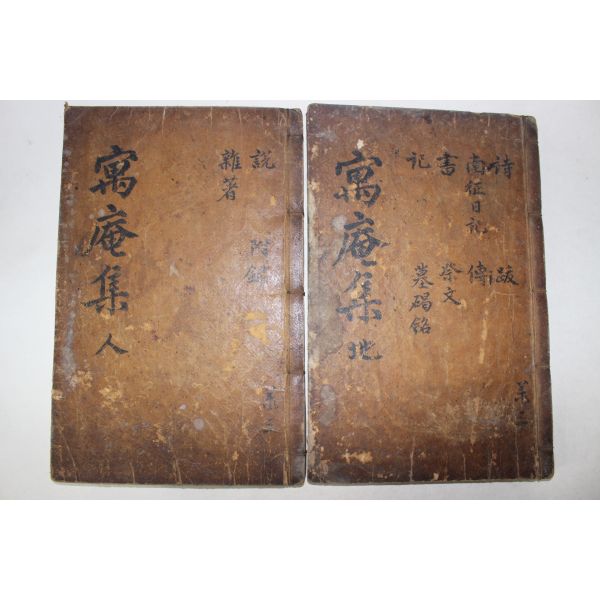 詩 跋
南征日記 傳
書 祭文
記 墓碣銘
寓庵集 地
共三
說 附錄
雜著
寓庵集 人
共三